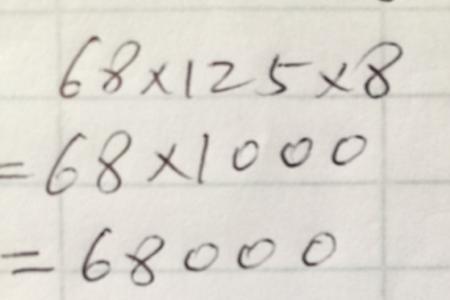 68×125×8
=68×1000
=68000